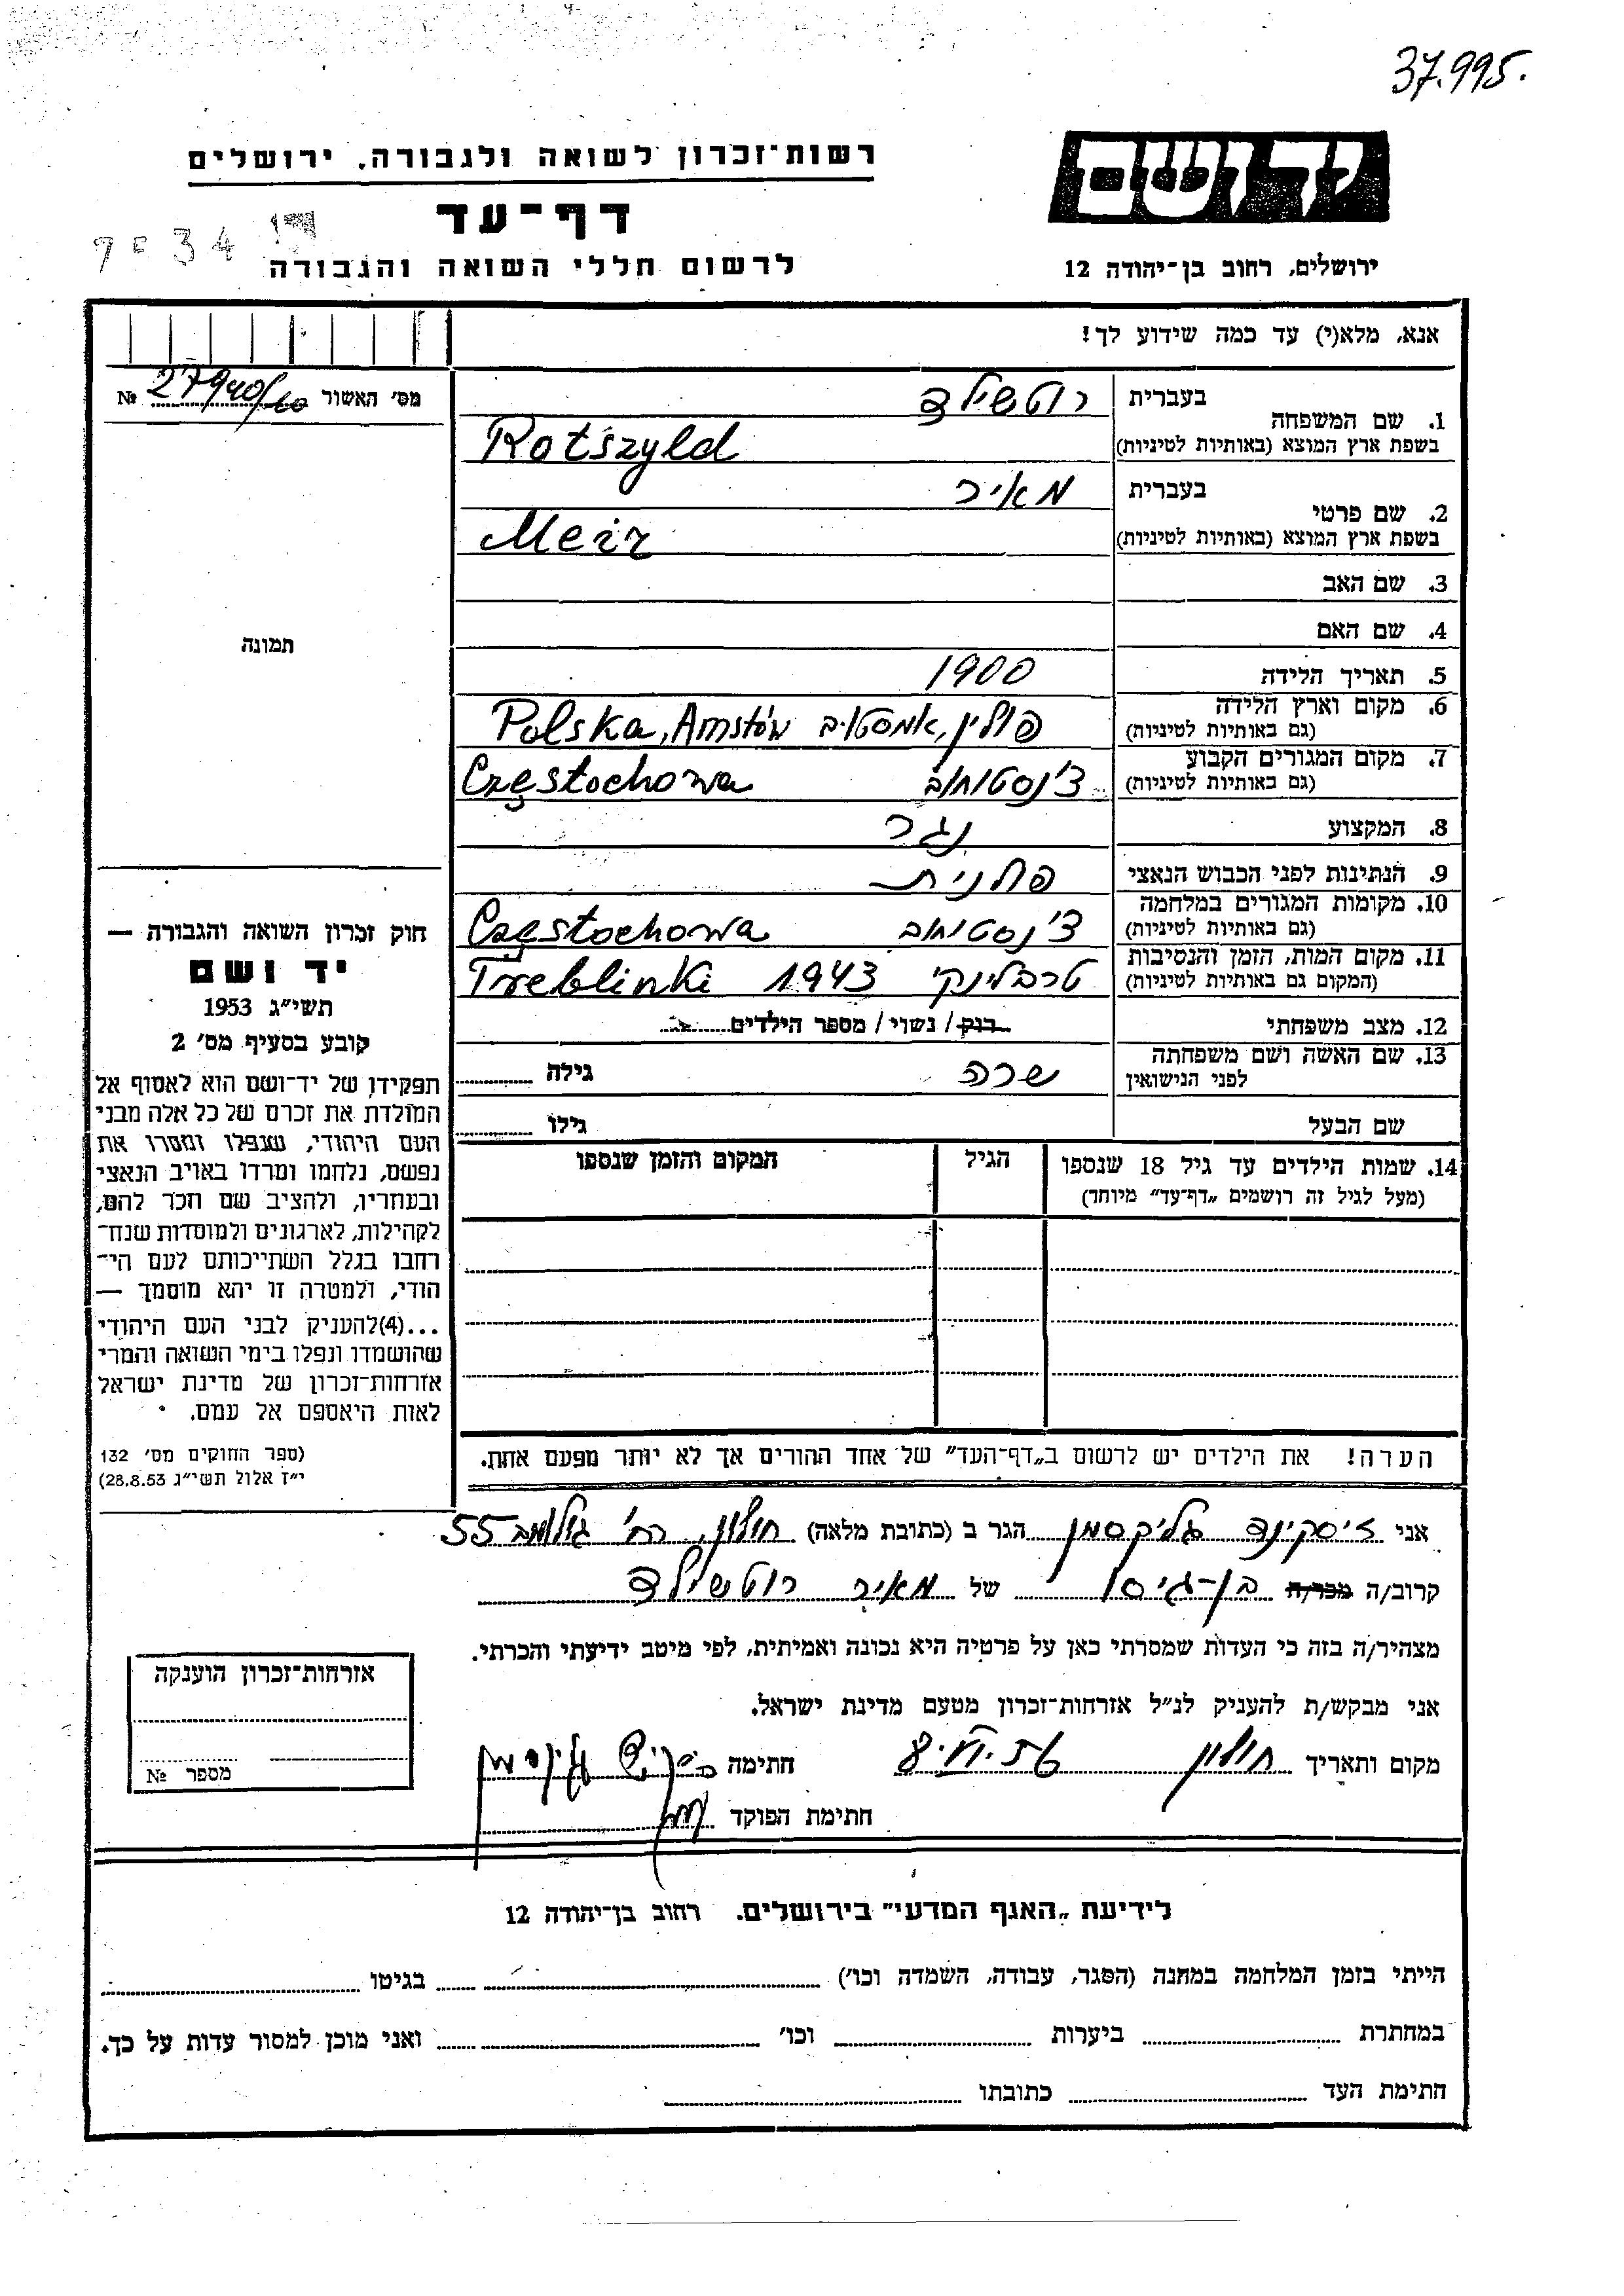 37.995.
יד ושם
רשות־זכרון לשואה ולגבורה, ירושלים
דף־עד
7-34
לרשום חללי השואה והגבורה
ירושלים, רחוב בן־יהודה 12
אנא, מלא(י) עד כמה שידוע לך!
מס׳ האשור № 27940/60
תמונה
1. שם המשפחה
בעברית רוטשילד
בשפת ארץ המוצא (באותיות לטיניות) Rotszyld
2. שם פרטי
בעברית מאיר
בשפת ארץ המוצא (באותיות לטיניות) Meir
3. שם האב
4. שם האם
5. תאריך הלידה 1900
6. מקום וארץ הלידה
(גם באותיות לטיניות) פולין, אמסטוב Polska, Amstów
7. מקום המגורים הקבוע
(גם באותיות לטיניות) צ'נסטוחוב Częstochowa
8. המקצוע נגר
9. הנתינות לפני הכבוש הנאצי פולנית
10. מקומות המגורים במלחמה
(גם באותיות לטיניות) צ'נסטוחוב Częstochowa
11. מקום המות, הזמן והנסיבות
(המקום גם באותיות לטיניות) טרבלינקי 1943 Treblinki
12. מצב משפחתי רוק / נשוי / מספר הילדים
13. שם האשה ושם משפחתה
לפני הנישואין שרה גילה
שם הבעל גילו
14. שמות הילדים עד גיל 18 שנספו
(מעל לגיל זה רושמים „דף־עד” מיוחד)
הגיל
המקום והזמן שנספו
חוק זכרון השואה והגבורה —
יד ושם
תשי״ג 1953
קובע בסעיף מס׳ 2
תפקידן של יד־ושם הוא לאסוף אל
המולדת את זכרם של כל אלה מבני
העם היהודי, שנפלו ומסרו את
נפשם, נלחמו ומרדו באויב הנאצי
ובעוזריו, ולהציב שם וזכר להם,
לקהילות, לארגונים ולמוסדות שנח־
רבו בגלל השתייכותם לעם הי־
הודי, ולמטרה זו יהא מוסמך —
...(4)להעניק לבני העם היהודי
שהושמדו ונפלו בימי השואה והמרי
אזרחות־זכרון של מדינת ישראל
לאות היאספם אל עמם.
(ספר החוקים מס׳ 132
י״ז אלול תשי״ג 28.8.53)
הערה! את הילדים יש לרשום ב„דף־העד” של אחד ההורים אך לא יותר מפעם אחת.
אני זיסקינד גליקסמן הגר ב (כתובת מלאה) חולון, רח' גולומב 55
קרוב/ה מכר/ה בן-גיסו של מאיר רוטשילד
מצהיר/ה בזה כי העדות שמסרתי כאן על פרטיה היא נכונה ואמיתית, לפי מיטב ידיעתי והכרתי.
אני מבקש/ת להעניק לנ״ל אזרחות־זכרון מטעם מדינת ישראל.
מקום ותאריך חולון חתימה
חתימת הפוקד
אזרחות־זכרון הוענקה
מספר №
לידיעת „האגף המדעי” בירושלים. רחוב בן־יהודה 12
הייתי בזמן המלחמה במחנה (הסגר, עבודה, השמדה וכו׳) בגיטו
במחתרת ביערות וכו׳ ואני מוכן למסור עדות על כך.
חתימת העד כתובתו